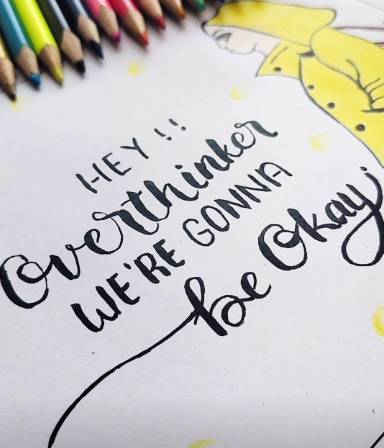 HEY !!
Overthinker
WE'RE GONNA
be Okay